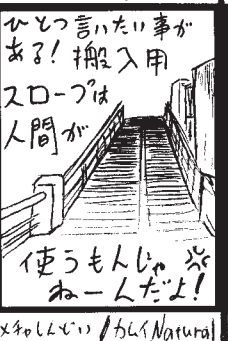 ひとつ言いたい事が
ある！搬入用
スロープは
人間が
使うもんじゃ
ねーんだよ！
メチャしんどい / カムイNatural